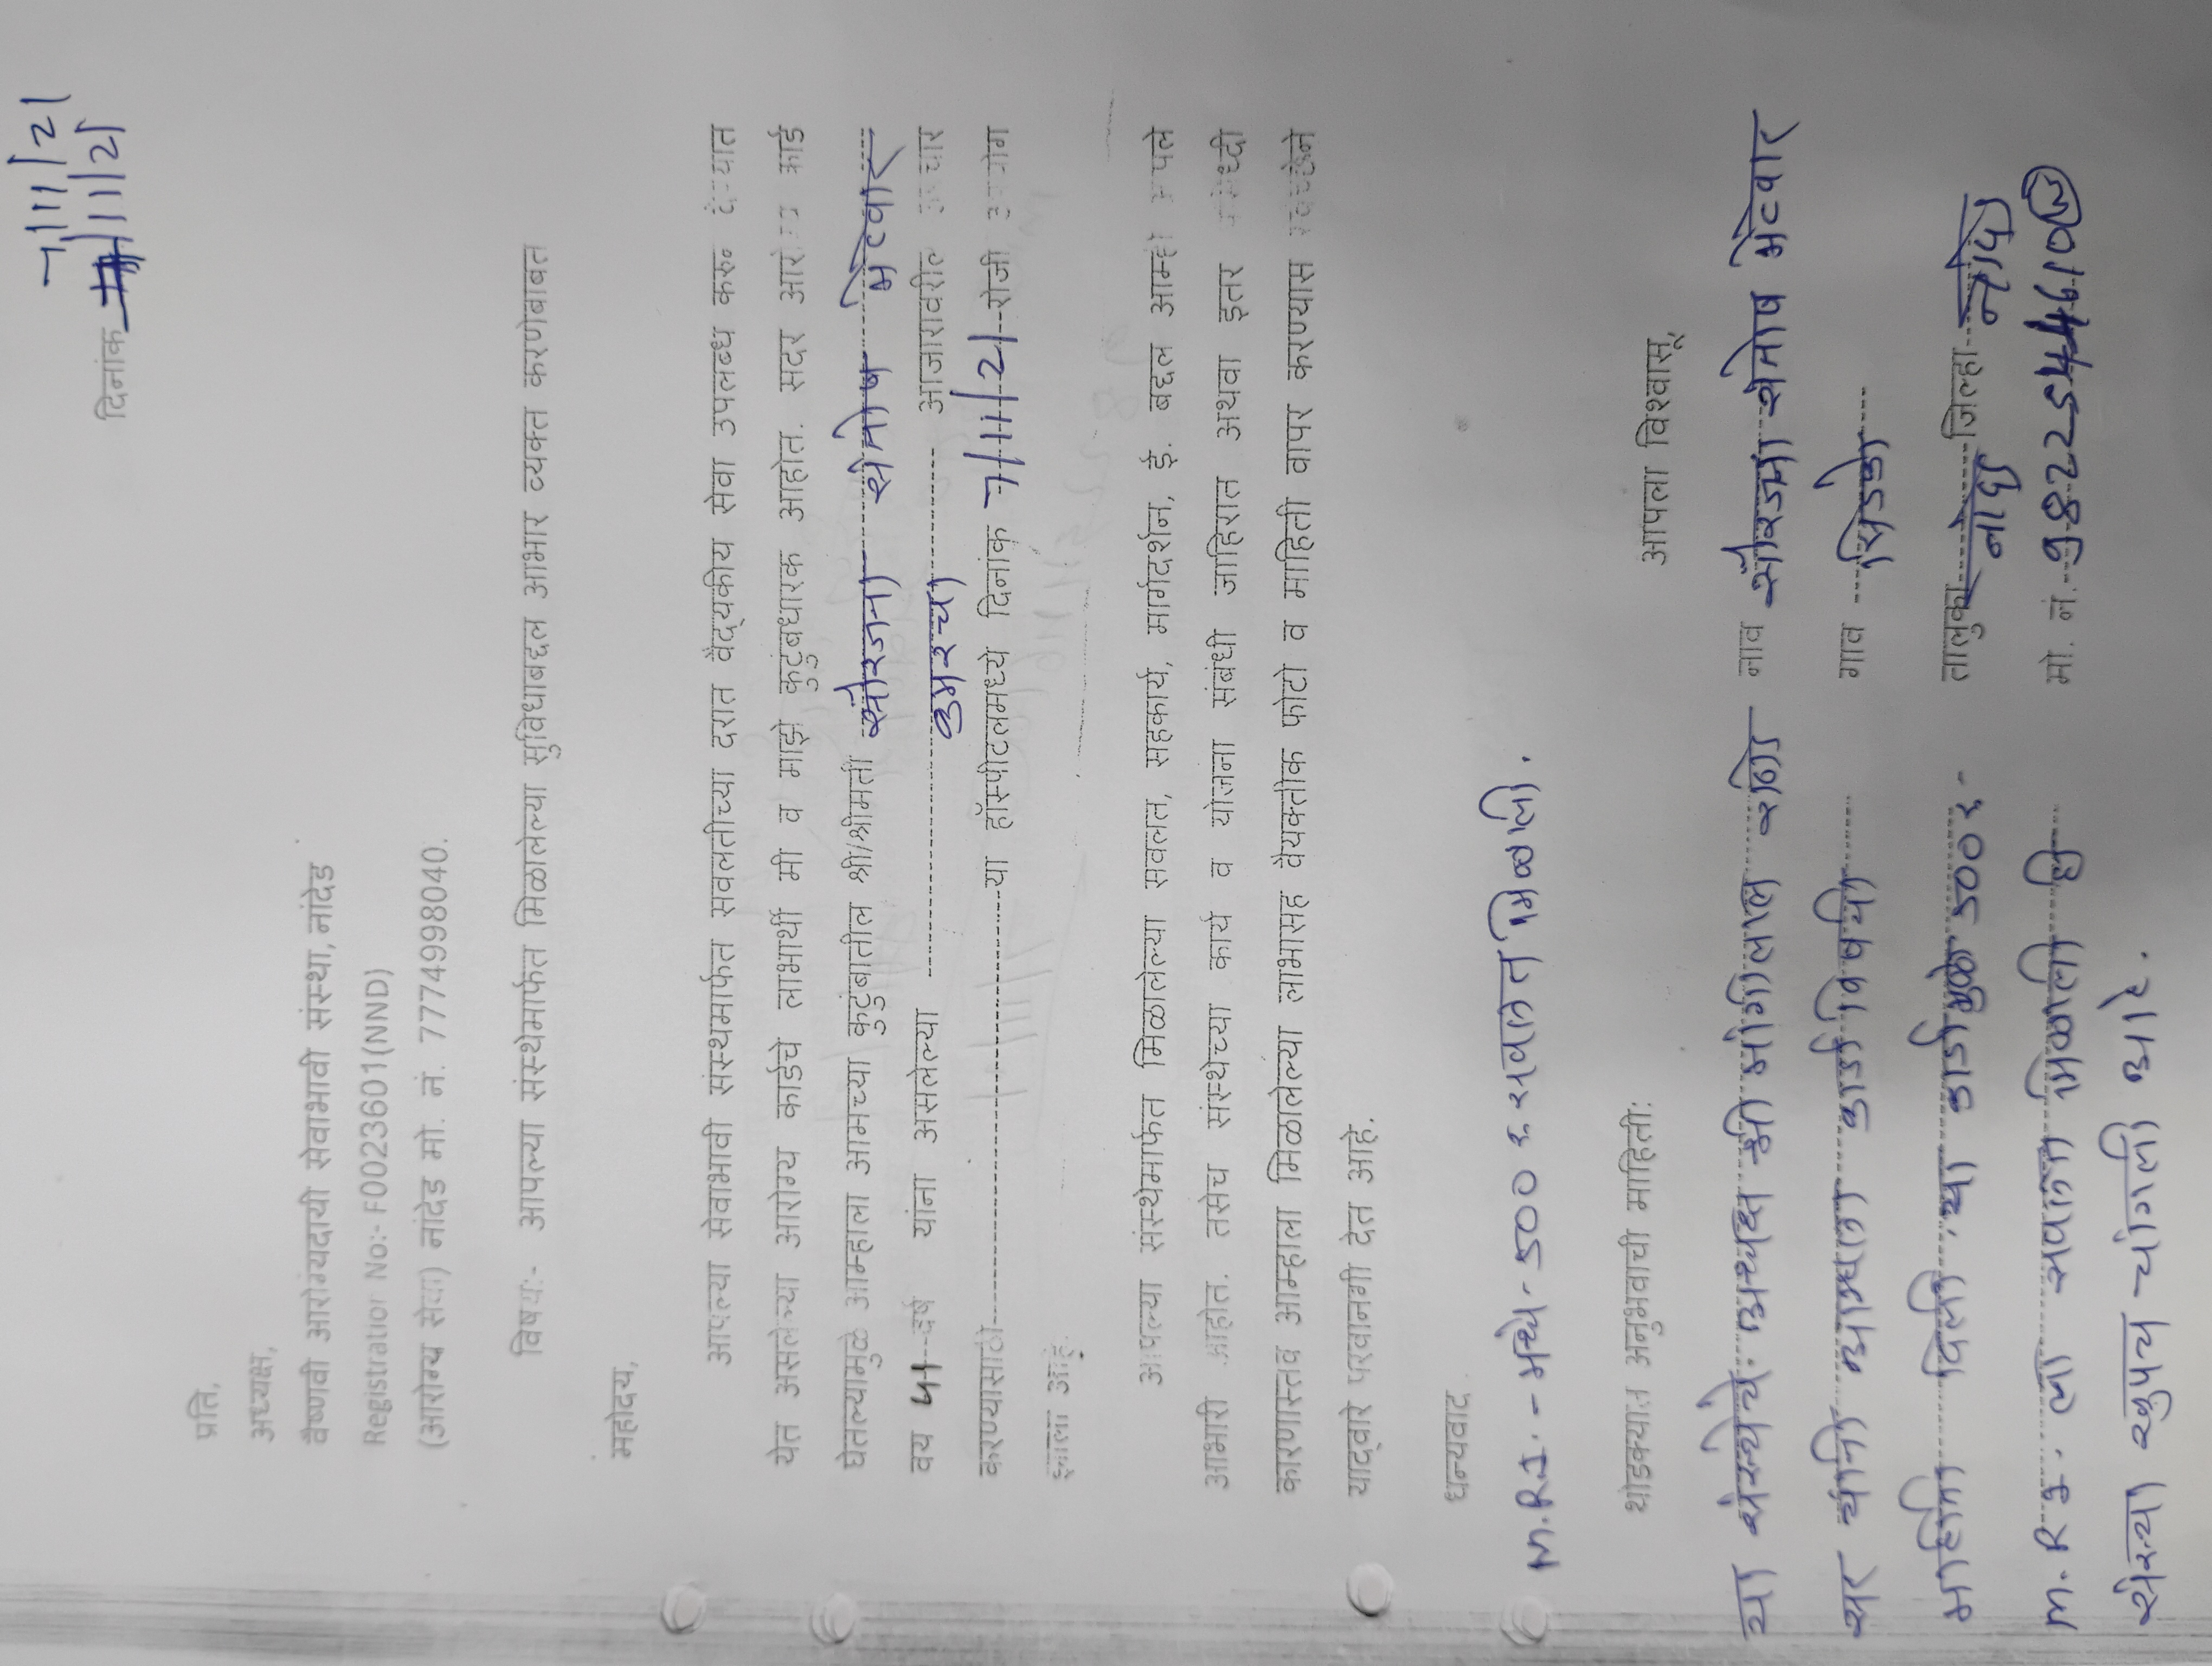 7/11/21
दिनांक 11/21
प्रति,
अध्यक्ष,
वैष्णवी आरोग्यदायी सेवाभावी संस्था, नांदेड
Registration No:- F0023601(NND)
(आरोग्य सेवा) नांदेड मो. नं. 7774998040.
विषय:- आपल्या संस्थेमार्फत मिळालेल्या सुविधाबद्दल आभार व्यक्त करणेबाबत
महोदय,
आपल्या सेवाभावी संस्थेमार्फत सवलतीच्या दरात वैद्यकीय सेवा उपलब्ध करून देण्यात
येत असलेल्या आरोग्य कार्डचे लाभार्थी मी व माझे कुटुंबधारक आहोत. सदर आरोग्य कार्ड
घेतल्यामुळे आम्हाला आमच्या कुटुंबातील श्री/श्रीमती
वय 51 वर्ष यांना असलेल्या आजारावरील उपचार
करण्यासाठी या हॉस्पीटलमध्ये दिनांक 7/11/21 रोजी उपयोग
झाला आहे.
आपल्या संस्थेमार्फत मिळालेल्या सवलत, सहकार्य, मार्गदर्शन, ई. बद्दल आम्ही आपले
आभारी आहोत. तसेच संस्थेच्या कार्य व योजना संबंधी जाहिरात अथवा इतर प्रसिध्दी
कारणास्तव आम्हाला मिळालेल्या लाभासह वैयक्तीक फोटो व माहिती वापर करण्यास स्वच्छेने
याद्वारे परवानगी देत आहे.
धन्यवाद
M.R.I. - मध्ये - 500 रु सवलत मिळाली.
आपला विश्वासू
थोडक्यात अनुभवाची माहिती:
या संस्थेचे अध्यक्ष श्री मांगीलाल राठोर
नाव
सर यांनी मला कार्ड विषयी
गाव सिडको
माहिती दिली. या कार्डामुळे 500 रु -
तालुका नांदेड जिल्हा नांदेड
M.R.I. ला सवलत मिळाली ही
मो. नं.
संस्था खुपच चांगली आहे.